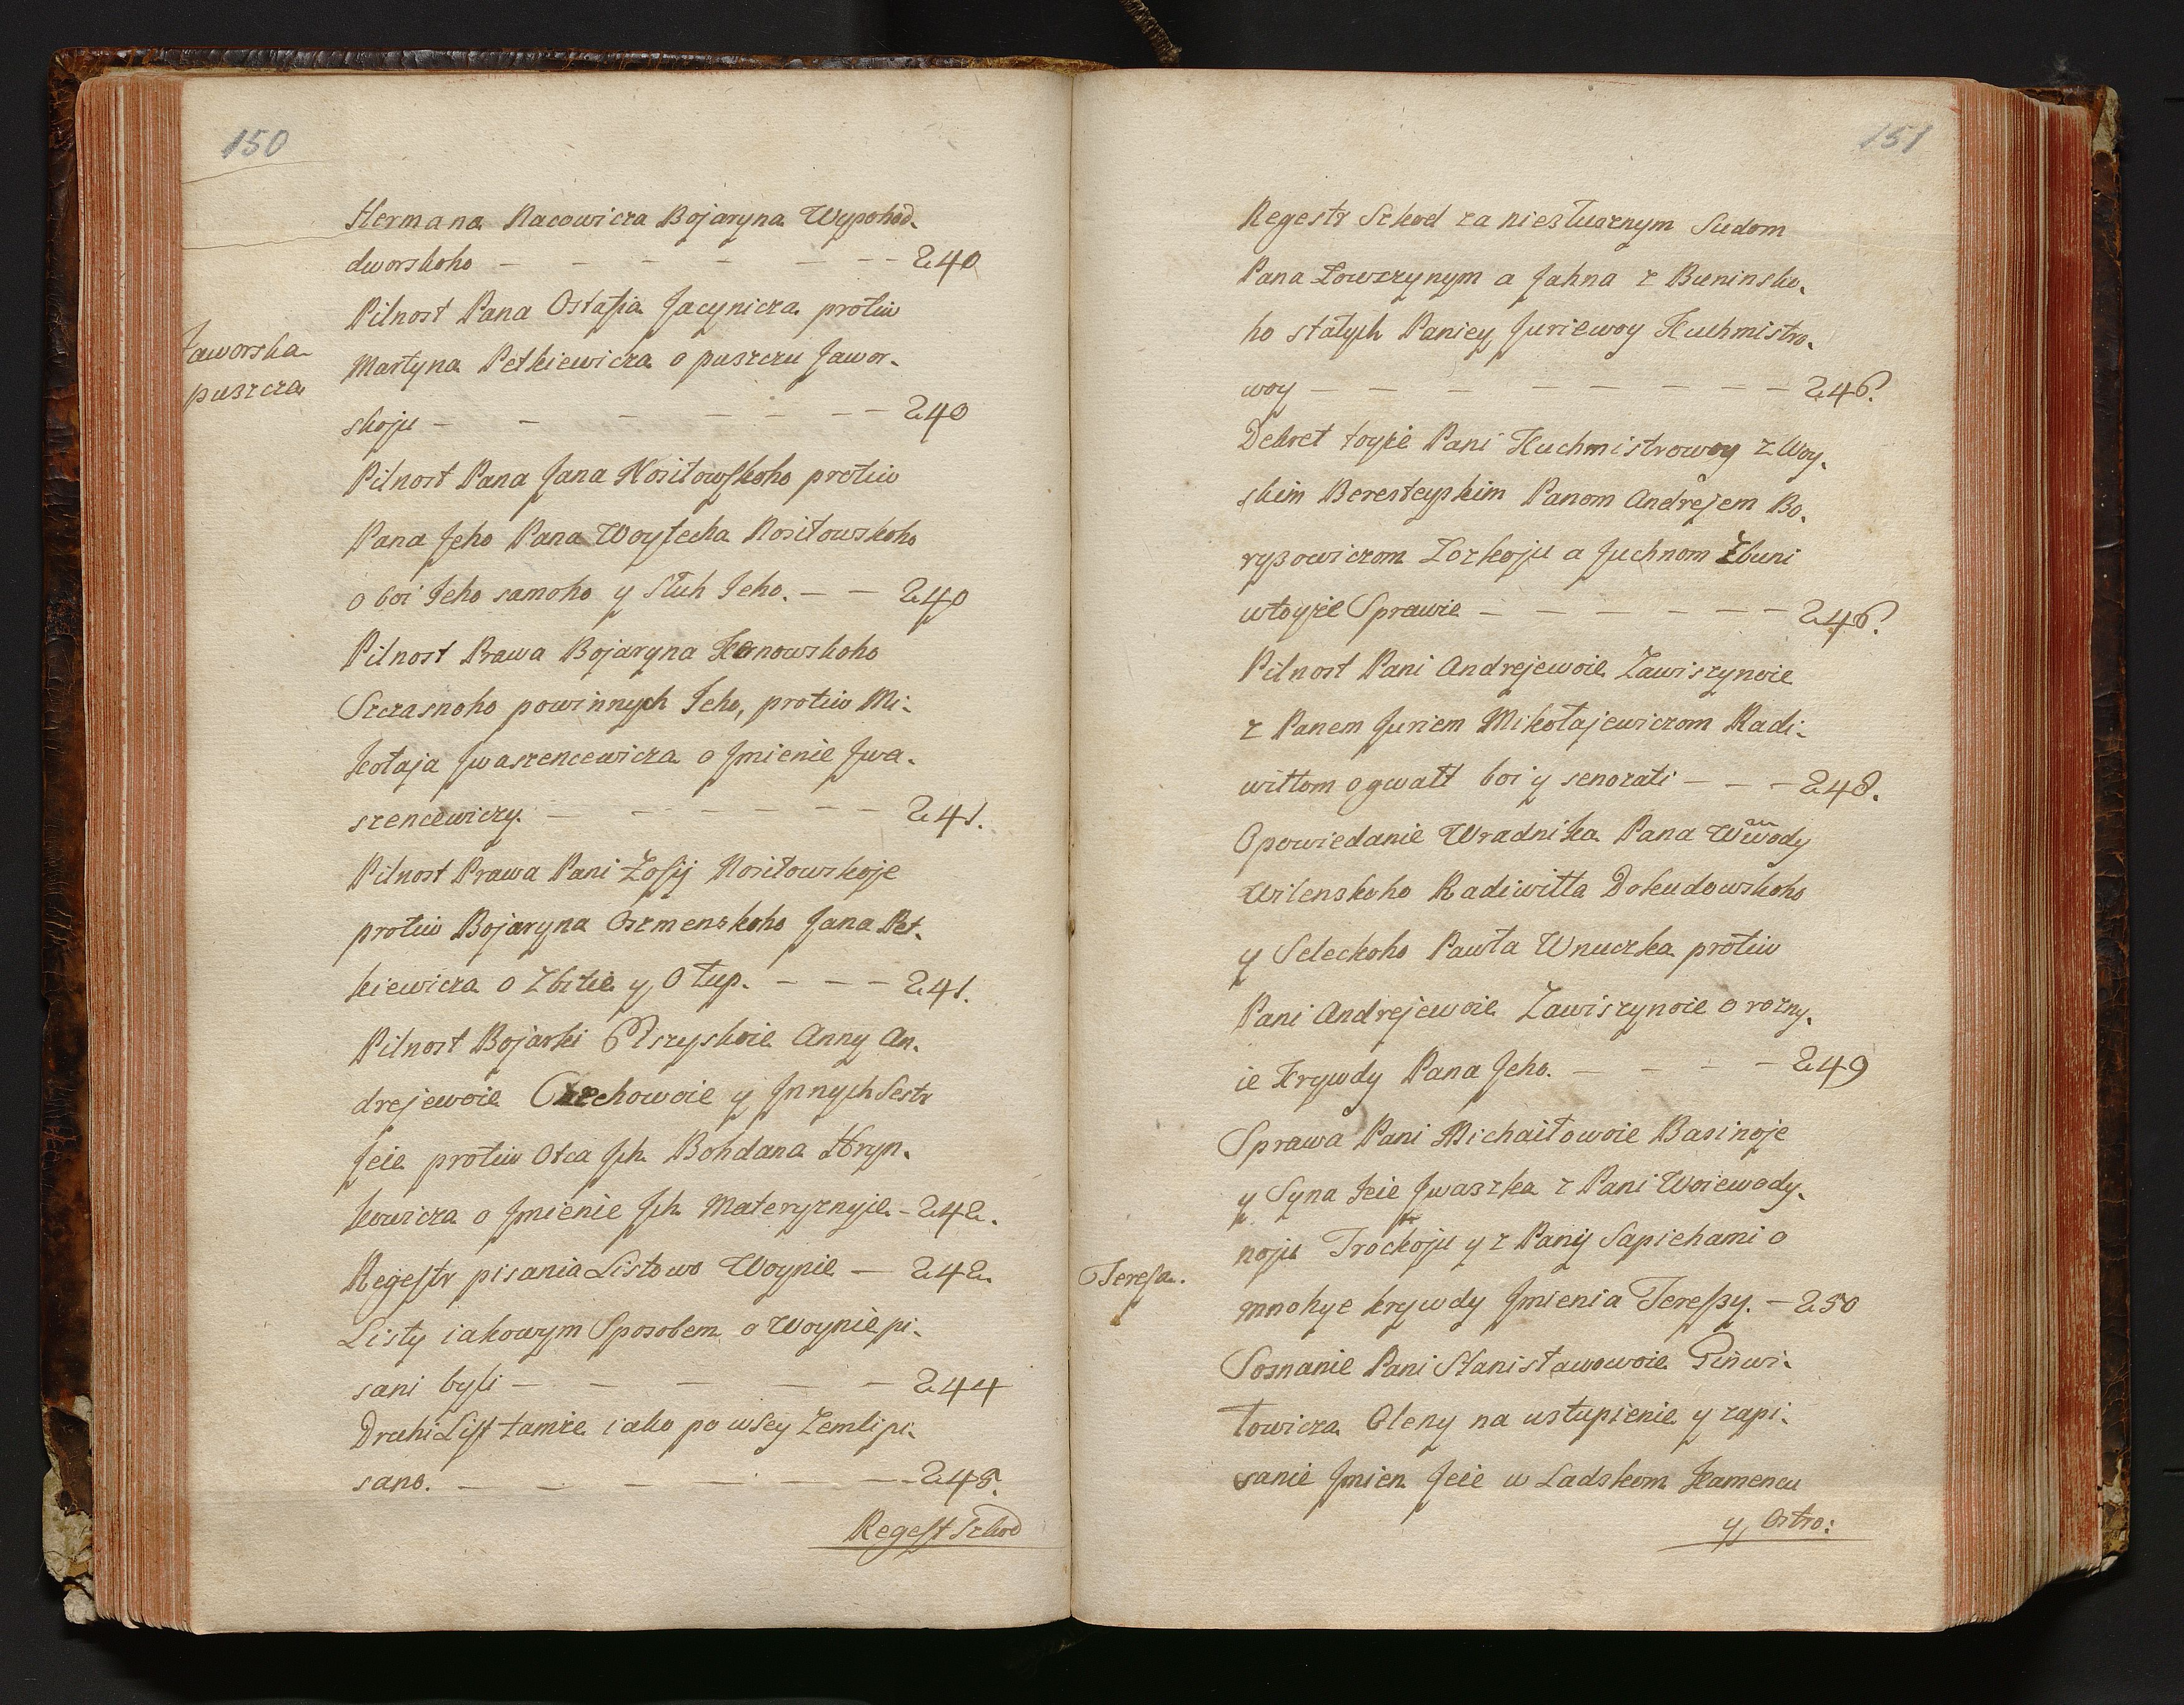 150
Hermana Racowicza Bojaryna Wypohod.
dworskoho — — — — — — 240
Pilnost Pana Ostafia Jacynicza protiw
Jaworska
puszcza
Martyna Petkiewicza o puszczu Jawor-
skoju — — — — — — 240
Pilnost Pana Jana Nositowskoho protiw
Pana Jeho Pana Woytecha Nositowskoho
o boi Jeho samoho y Słuh Jeho. — — 240
Pilnost Prawa Bojaryna Hanowskoho
Szczasnoho powinnych Jeho, protiw Mi-
kołaja Jwaszencewicza o Jmienie Jwa-
szencewiczy. — — — — — — 241.
Pilnost Prawa Pani Zofij Nositowskoje
protiw Bojaryna Oszmenskoho Jana Pet.
kiewicza o Zbitie y O łup. — — — 241.
Pilnost Bojarki Anny An.
drejewoie y Jnnych Sestr
Jeie protiw Otca Jch Bohdana Hryn.
kowicza o Jmienie Jch Materyznyie — 242.
Regestr pisania Listow o Woynie — 242.
Listy iakowym Sposobem o Woynie pi.
sani byli — — — — — 244
Druhi List tamże iako po wsey Zemli pi.
sano. — — — — — — 245.
Regest Szkod
151
Regestr Szkod za niesłusznym Sudom
Pana Łowczynym a Jahna z Buninsko.
ho stałych Paniey Juriewoy Kuchmistro.
woy — — — — — — — — 246.
Dekret toyże Pani Kuchmistrowoy z Woy.
skim Beresteyskim Panom Andrejem Bo.
rysowiczom Lozkoju a Juchnom Zbuni
wtoyże Sprawie — — — — — — 246.
Pilnost Pani Andrejewoie Zawiszynoie
z Panem Juriem Mikołajewiczom Radi-
wiłłom o gwałt boi y senozati — — — 248.
Opowiedanie Wradnika Pana Wwody
Wilenskoho Radiwiłła Dokudowskoho
y Seleckoho Pawła Wnuczka protiw
Pani Andrejewoie Zawiszynoie o rozny.
ie Krywdy Pana Jeho. — — — — 249
Sprawa Pani Michaiłowoie Basinoje
y Syna Jeie Jwaszka z Pani Woiewody.
noju Trockoju y z Panij Sapiehami o
Teresa.
mnohye krywdy Jmienia Teressy. — 250
Sosnanie Pani Stanisławowoie Ginwi-
łowicza Oleny na ustupienie y zapi-
sanie Jmien Jeie w Ladskom Kamencu
y Ostro: